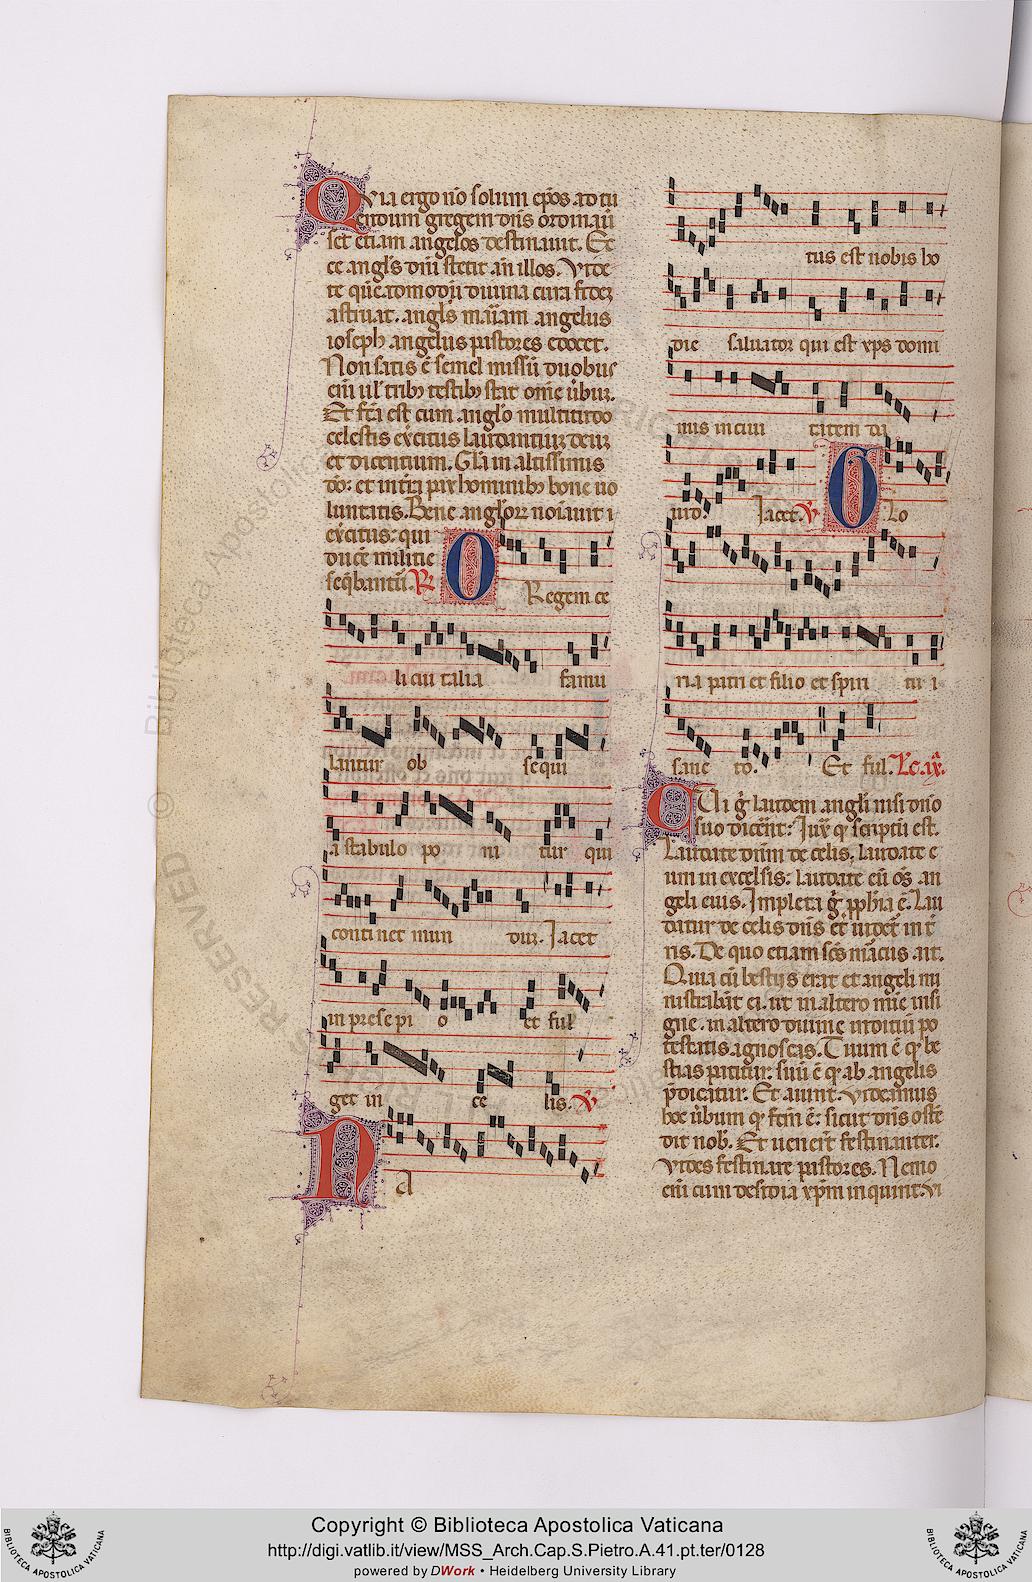 Quia ergo nō solum ep̄os ad tu
endum gregem dn̄s ordinaū
set etiam angelos destinauit. Et
ce angl̄s dn̄i stetit an̄ illos. Vide
te quē.
astruat. angl̄s mariam angelus
ioseph angelus pastores edocet.
Non satis ē semel missū duobus
eni᷒ ul' trib; testib; stat om̄e ūbuꝫ.
Et fc̄a est cum anglo multitudo
celestis ex̄citus laudantiuꝫ deuꝫ
et dicentium. Gl̄a in altissimis
do: et in tr̄a pax hominib; bone uo
luntatis. Bene angloꝝ noīauit
ex̄citus: qui
ducē militie
seq̄bantū. ℟ O Regem ce
li cui talia famu
lantur ob sequi
a stabulo po ni tur qui
continet mun dū. Jacet
in presepi o et ful
get in ce lis. ℣
N a
tus est nobis ho
die saluator qui est xp̄s domi
nus in ciui tatem da
uid. Jacet. ℣ Glo
ria patri et filio et spiri tu i
sanc to. Et ful. Lc̄. ix.
Cui ḡ laudem angl̄i nisi dn̄o
suo dicer̄nt: Jux̄ qd̄ scriptū est.
Laudate dn̄m de celis, laudate e
um in excelsis: laudate eū om̄s an
geli eius. Impleta ḡ pp̄hia ē. Lau
datur de celis dn̄s et uidet̄ in t̄
ris. De quo etiam sc̄s marcus ait.
Quia cū bestijs erat et angeli mi
nistrabāt ei. ut in altero mīe insi
gne. in altero diuine
testatis agnoscas. Tuum ē qd̄ be
stias patitur: suū ē qd̄ ab angelis
p̄dicatur. Et aiunt. videamus
hoc ūbum qd̄ fc̄m ē: sicut dn̄s oste
dit nob̄. Et uener̄t festinantes.
Vides festinare pastores. Nemo
eni᷒ cum desidia xp̄m inquirit. Vi
Copyright © Biblioteca Apostolica Vaticana
http://digi.vatlib.it/view/MSS_Arch.Cap.S.Pietro.A.41.pt.ter/0128
powered by DWork • Heidelberg University Library
BIBLIOTECA APOSTOLICA VATICANA
BIBLIOTECA APOSTOLICA VATICANA